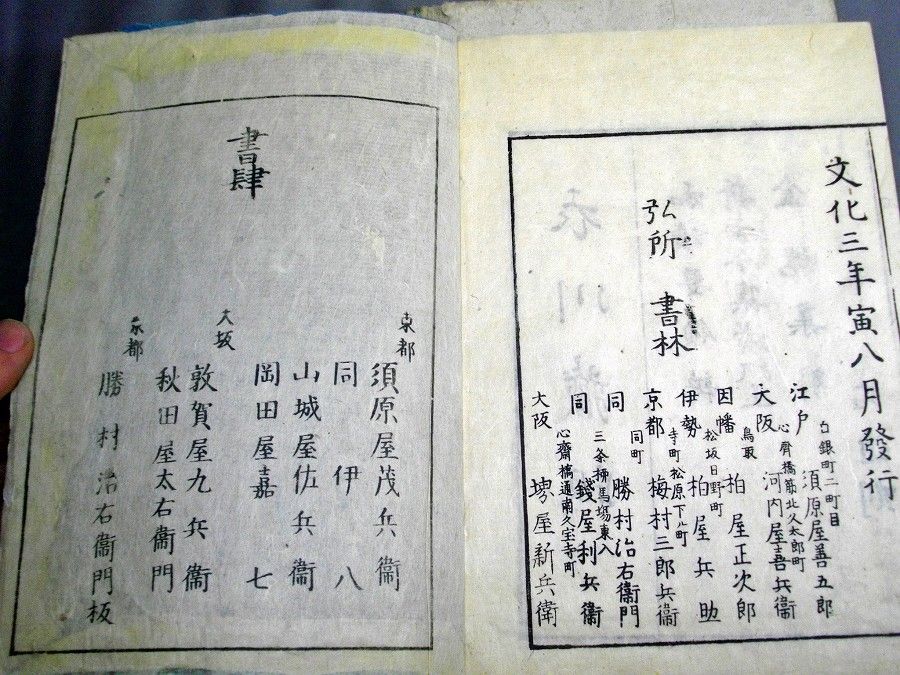 文化三年寅八月發行
弘所 書林
江戸 白銀町二町目 須原屋善五郎
大阪 心齊橋筋北久太郎町 河内屋吉兵衞
因幡 鳥取 柏屋正次郎
伊勢 松坂日野町 柏屋兵助
京都 寺町松原下ル町 梅村三郎兵衞
同 同町 勝村治右衞門
同 三条柳馬場東入 錢屋利兵衞
大阪 心齋橋通南久宝寺町 堺屋新兵衛
書肆
東都 須原屋茂兵衞
同 伊八
山城屋佐兵衞
岡田屋嘉七
大坂 敦賀屋九兵衞
秋田屋太右衞門
京都 勝村治右衞門板